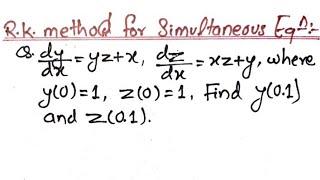 R.K. method for Simultaneous Eqⁿ:-
Q. dy/dx = yz+x, dz/dx = xz+y, where
y(0)=1, z(0)=1, Find y(0.1)
and z(0.1).